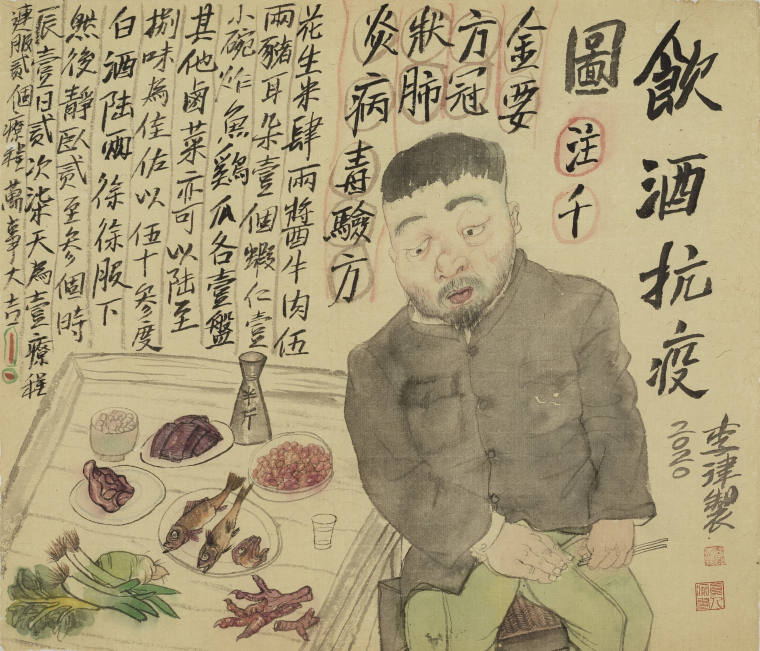 飲酒抗疫
圖注千
金要
方冠
狀肺
炎病毒驗方
花生米肆兩醬牛肉伍
兩豬耳朵壹個蝦仁壹
小碗炸魚雞爪各壹盤
其他鹵菜亦可以陸至
捌味為佳佐以伍十叁度
白酒陸兩徐徐服下
然後靜臥貳至叁個時
辰壹日貳次柒天為壹療程
連服貳個療程萬事大吉
李津製
二〇二〇
半斤